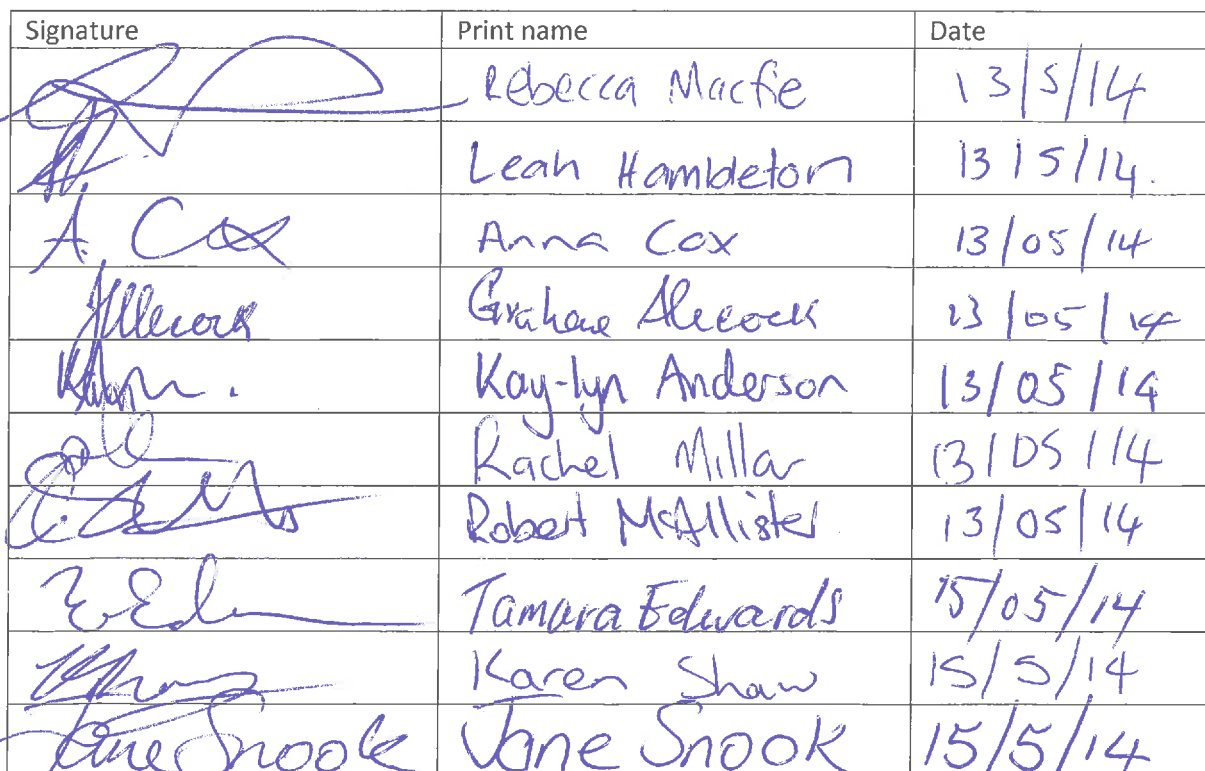 Signature Print name Date
Rebecca Macfie 13/5/14
Leah Hambleton 13/5/14.
A. Cox Anna Cox 13/05/14
Grahame Alecock 13/05/14
Kay-lyn Anderson 13/05/14
Rachel Millar 13/05/14
Robert McAllister 13/05/14
Tamara Edwards 15/05/14
Karen Shaw 15/5/14
Jane Snook Jane Snook 15/5/14